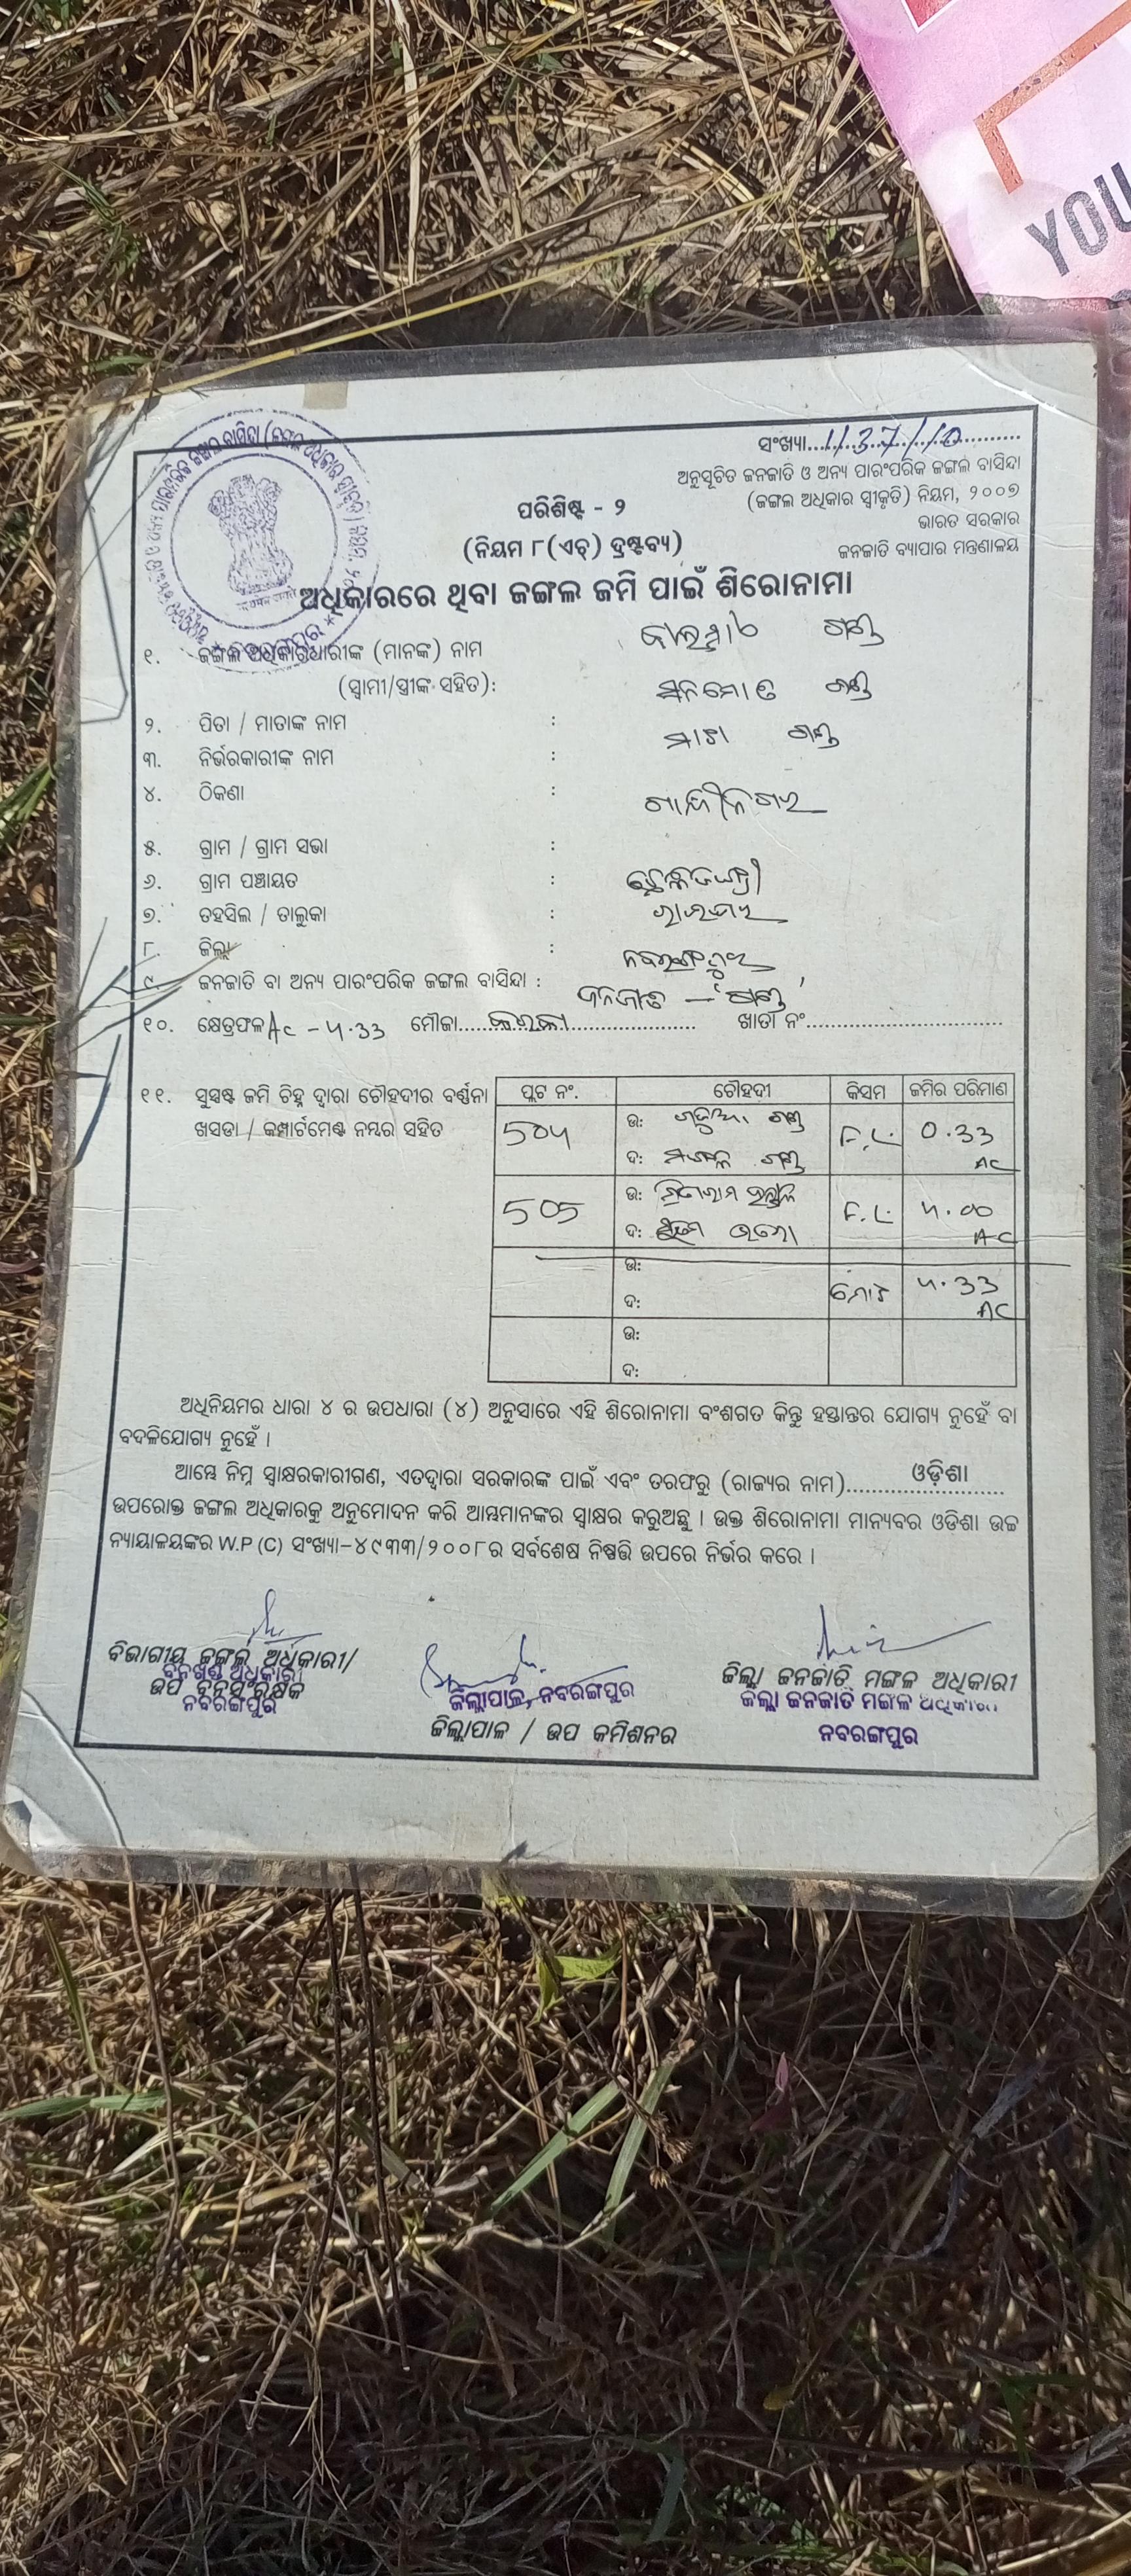 YOU
ସଂଖ୍ୟା....1137/10....
ଅନୁସୂଚିତ ଜନଜାତି ଓ ଅନ୍ୟ ପାରଂପରିକ ଜଙ୍ଗଲ ବାସିନ୍ଦା
(ଜଙ୍ଗଲ ଅଧିକାର ସ୍ୱୀକୃତି) ନିୟମ, ୨୦୦୭
ଭାରତ ସରକାର
ଜନଜାତି ବ୍ୟାପାର ମନ୍ତ୍ରଣାଳୟ
ପରିଶିଷ୍ଟ - ୨
(ନିୟମ ୮(ଏଚ୍) ଦ୍ରଷ୍ଟବ୍ୟ)
ଅଧିକାରରେ ଥିବା ଜଙ୍ଗଲ ଜମି ପାଇଁ ଶିରୋନାମା
୧. ଜଙ୍ଗଲ ଅଧିକାରଧାରୀଙ୍କ (ମାନଙ୍କ) ନାମ ଗଣ୍ଡ
(ସ୍ୱାମୀ/ସ୍ତ୍ରୀଙ୍କ ସହିତ): ଗଣ୍ଡ
୨. ପିତା / ମାତାଙ୍କ ନାମ : ଗଣ୍ଡ
୩. ନିର୍ଭରକାରୀଙ୍କ ନାମ :
୪. ଠିକଣା : ଗାନ୍ଧୀନଗର
୫. ଗ୍ରାମ / ଗ୍ରାମ ସଭା :
୬. ଗ୍ରାମ ପଞ୍ଚାୟତ :
୭. ତହସିଲ / ତାଲୁକା : ରାଇଘର
୮. ଜିଲ୍ଲା : ନବରଙ୍ଗପୁର
୯. ଜନଜାତି ବା ଅନ୍ୟ ପାରଂପରିକ ଜଙ୍ଗଲ ବାସିନ୍ଦା : ଜନଜାତି — 'ଗଣ୍ଡ'
୧୦. କ୍ଷେତ୍ରଫଳ AC - 4.33 ମୌଜା.......... ଖାତା ନଂ..........
୧୧. ସୁସ୍ପଷ୍ଟ ଜମି ଚିହ୍ନ ଦ୍ୱାରା ଚୌହଦୀର ବର୍ଣ୍ଣନା
ଖସଡା / କମ୍ପାର୍ଟମେଣ୍ଟ ନମ୍ବର ସହିତ
ପ୍ଲଟ ନଂ. ଚୌହଦୀ କିସମ ଜମିର ପରିମାଣ
504 ଉ: ଗଣ୍ଡ F.L. 0.33
ଦ: ମଙ୍ଗଳ ଗଣ୍ଡ AC
505 ଉ: F.L. 4.00
ଦ: AC
ଉ: ମୋଟ 4.33
ଦ: AC
ଉ:
ଦ:
ଅଧିନିୟମର ଧାରା ୪ ର ଉପଧାରା (୪) ଅନୁସାରେ ଏହି ଶିରୋନାମା ବଂଶଗତ କିନ୍ତୁ ହସ୍ତାନ୍ତର ଯୋଗ୍ୟ ନୁହେଁ ବା
ବଦଳିଯୋଗ୍ୟ ନୁହେଁ ।
ଆମ୍ଭେ ନିମ୍ନ ସ୍ୱାକ୍ଷରକାରୀଗଣ, ଏତଦ୍ୱାରା ସରକାରଙ୍କ ପାଇଁ ଏବଂ ତରଫରୁ (ରାଜ୍ୟର ନାମ)......ଓଡ଼ିଶା......
ଉପରୋକ୍ତ ଜଙ୍ଗଲ ଅଧିକାରକୁ ଅନୁମୋଦନ କରି ଆମ୍ଭମାନଙ୍କର ସ୍ୱାକ୍ଷର କରୁଅଛୁ । ଉକ୍ତ ଶିରୋନାମା ମାନ୍ୟବର ଓଡିଶା ଉଚ୍ଚ
ନ୍ୟାୟାଳୟଙ୍କର W.P (C) ସଂଖ୍ୟା-୪୯୩୩/୨୦୦୮ର ସର୍ବଶେଷ ନିଷ୍ପତ୍ତି ଉପରେ ନିର୍ଭର କରେ ।
ବିଭାଗୀୟ ଜଙ୍ଗଲ ଅଧିକାରୀ/
ବନଖଣ୍ଡ ଅଧିକାରୀ
ଉପ ବନସଂରକ୍ଷକ
ନବରଙ୍ଗପୁର
ଜିଲ୍ଲାପାଳ, ନବରଙ୍ଗପୁର
ଜିଲ୍ଲାପାଳ / ଉପ କମିଶନର
ଜିଲ୍ଲା ଜନଜାତି ମଙ୍ଗଳ ଅଧିକାରୀ
ଜିଲ୍ଲା ଜନଜାତି ମଙ୍ଗଳ ଅଧିକାରୀ
ନବରଙ୍ଗପୁର